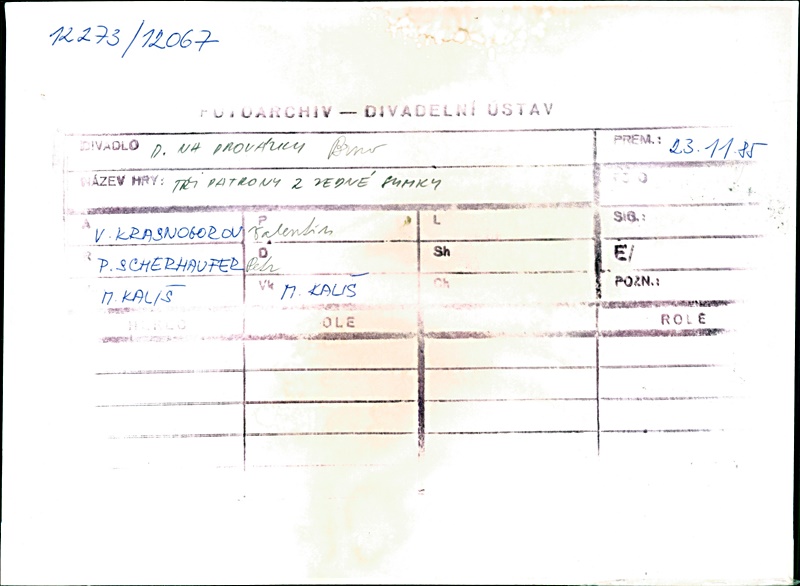 12273/12067
FOTOARCHIV — DIVADELNÍ ÚSTAV
DIVADLO D. NA PROVÁZKU Brno PREM.: 23.11.85
NÁZEV HRY: TŘI PATRONY Z JEDNÉ PUMKY
A V. KRASNOGOROV Valentin P L SIG.:
R P. SCHERHAUFER Petr D Sh E/
M. KALIŠ Vk M. KALIŠ Ch POZN.:
HEREC ROLE ROLE